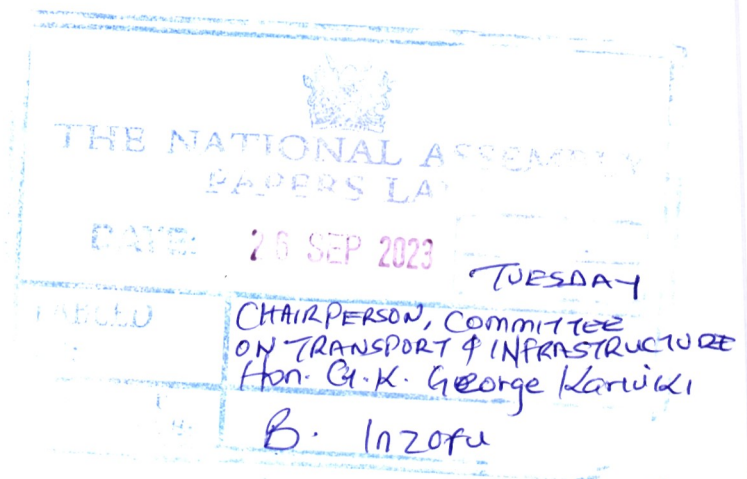 THE NATIONAL ASSEMBLY
PAPERS LA
DATE: 26 SEP 2023 TUESDAY
TABLED CHAIRPERSON, COMMITTEE
ON TRANSPORT & INFRASTRUCTURE
Hon. G.K. George Kariuki
B. Inzofu